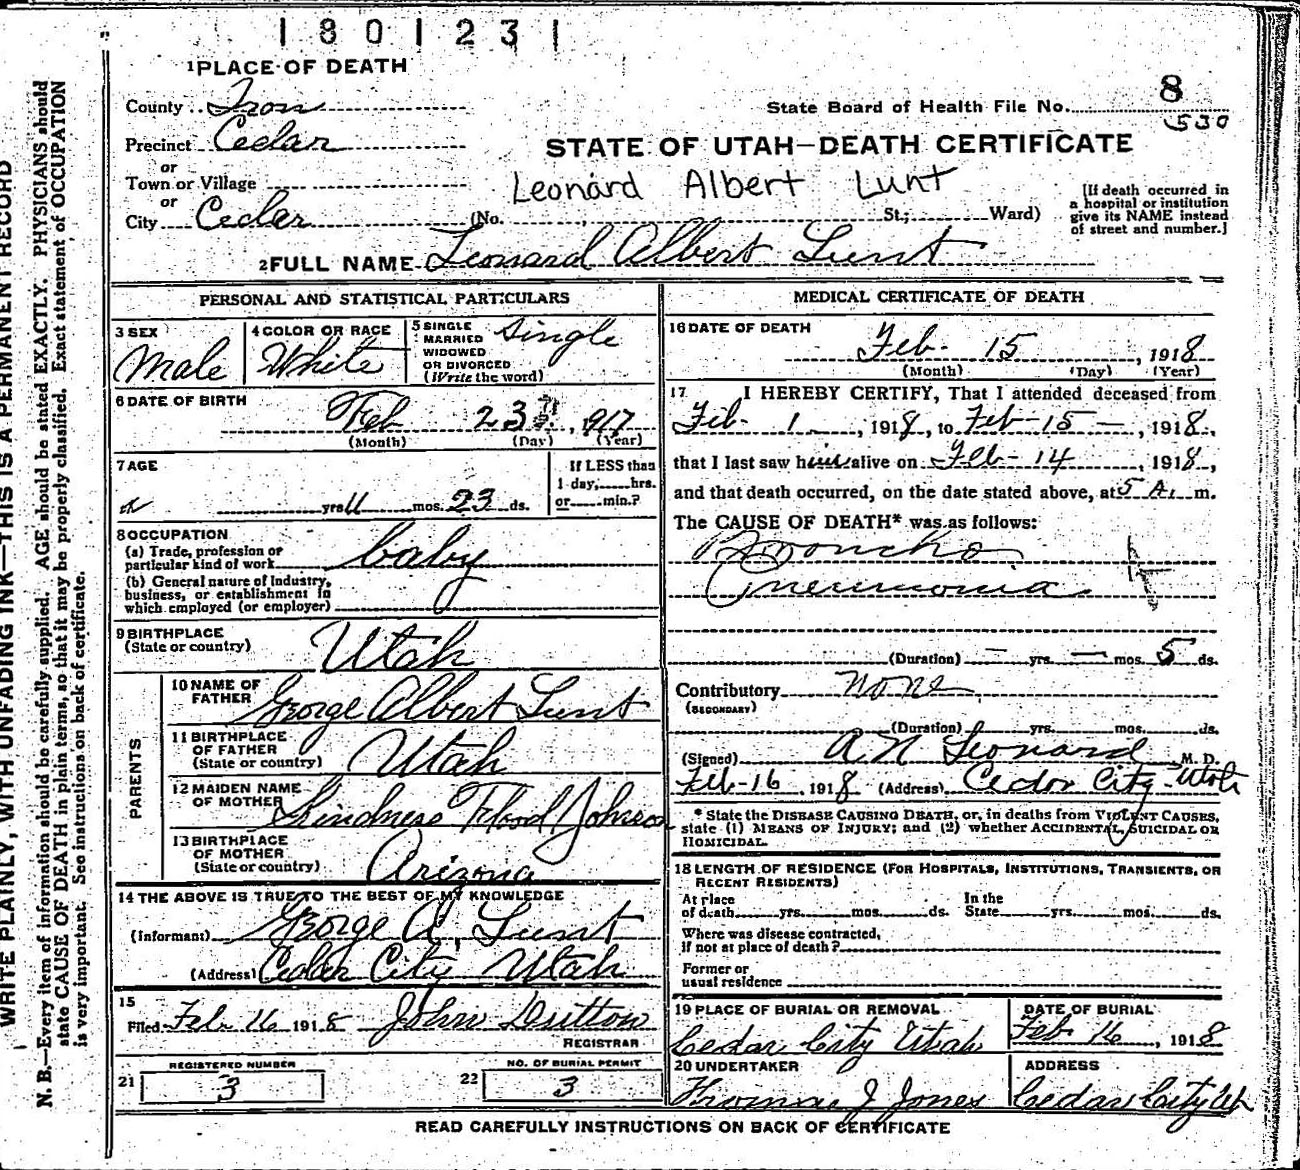 1801231
1 PLACE OF DEATH
County Iron
State Board of Health File No. 8
530
Precinct Cedar
STATE OF UTAH—DEATH CERTIFICATE
or
Town or Village
Leonard Albert Lunt
or
City Cedar (No. St.; Ward)
[If death occurred in
a hospital or institution
give its NAME instead
of street and number.]
2 FULL NAME Leonard Albert Lunt
PERSONAL AND STATISTICAL PARTICULARS
3 SEX
Male
4 COLOR OR RACE
White
5 SINGLE
MARRIED
WIDOWED
OR DIVORCED
(Write the word)
Single
6 DATE OF BIRTH
Feb 23, 917
(Month) (Day) (Year)
7 AGE
yrs 11 mos. 23 ds.
If LESS than
1 day, hrs.
or min.?
8 OCCUPATION
(a) Trade, profession or
particular kind of work baby
(b) General nature of Industry,
business, or establishment in
which employed (or employer)
9 BIRTHPLACE
(State or country) Utah
PARENTS
10 NAME OF
FATHER George Albert Lunt
11 BIRTHPLACE
OF FATHER
(State or country) Utah
12 MAIDEN NAME
OF MOTHER Kindness Flood Johnson
13 BIRTHPLACE
OF MOTHER
(State or country) Arizona
14 THE ABOVE IS TRUE TO THE BEST OF MY KNOWLEDGE
(Informant) George A. Lunt
(Address) Cedar City Utah
15
Filed Feb 16 1918 John Dutton
REGISTRAR
21 REGISTERED NUMBER
3
22 NO. OF BURIAL PERMIT
3
MEDICAL CERTIFICATE OF DEATH
16 DATE OF DEATH
Feb- 15, 1918
(Month) (Day) (Year)
17 I HEREBY CERTIFY, That I attended deceased from
Feb- 1, 1918, to Feb-15-, 1918,
that I last saw him alive on Feb-14, 1918,
and that death occurred, on the date stated above, at 5 A. m.
The CAUSE OF DEATH* was as follows:
Broncho
Pneumonia
(Duration) — yrs. — mos. 5 ds.
Contributory None
(SECONDARY)
(Duration) yrs. mos. ds.
(Signed) A N Leonard M. D.
Feb-16, 1918 (Address) Cedar City-Utah
* State the DISEASE CAUSING DEATH, or, in deaths from VIOLENT CAUSES,
state (1) MEANS OF INJURY; and (2) whether ACCIDENTAL, SUICIDAL OR
HOMICIDAL.
18 LENGTH OF RESIDENCE (FOR HOSPITALS, INSTITUTIONS, TRANSIENTS, OR
RECENT RESIDENTS)
At place
of death yrs. mos. ds.
In the
State yrs. mos. ds.
Where was disease contracted,
if not at place of death?
Former or
usual residence
19 PLACE OF BURIAL OR REMOVAL
Cedar City Utah
DATE OF BURIAL
Feb 16, 1918
20 UNDERTAKER
Thomas J Jones
ADDRESS
Cedar City Ut
READ CAREFULLY INSTRUCTIONS ON BACK OF CERTIFICATE
WRITE PLAINLY, WITH UNFADING INK—THIS IS A PERMANENT RECORD
N. B.—Every item of information should be carefully supplied. AGE should be stated EXACTLY. PHYSICIANS should
state CAUSE OF DEATH in plain terms, so that it may be properly classified. Exact statement of OCCUPATION
is very important. See instructions on back of certificate.